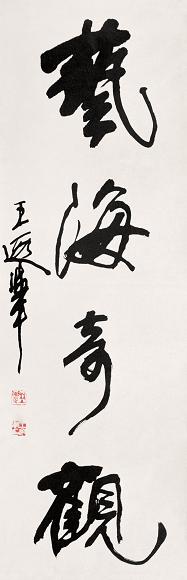 藝海奇觀
王遐舉